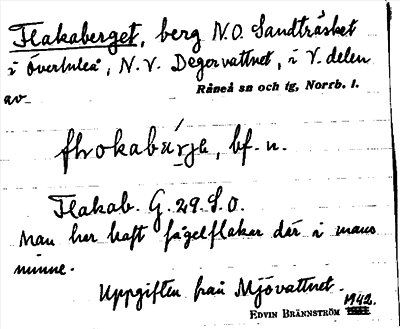 Flakaberget, berg N.O. Sandträsket
i Överluleå, N.V. Degervattnet, i V. delen
av Råneå sn och tg, Norrb. l.
flakabärje, bf. n.
Flakab. G. 29. S.O.
Man har haft fågelflakar där i mans
minne.
Uppgiften från Mjövattnet.
EDVIN BRÄNNSTRÖM 1942.